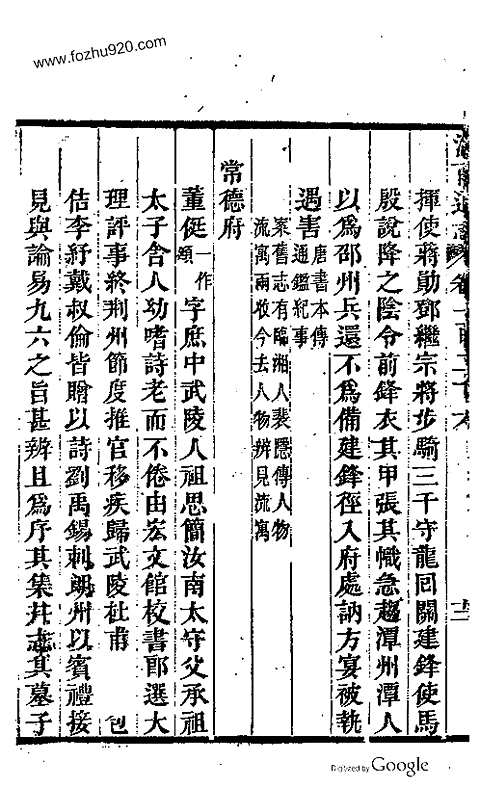 www.fozhu920.com
揮使蔣勛鄧繼宗將步騎三千守龍回關建鋒使馬
殷說降之陰令前鋒衣其甲張其幟急趨潭州潭人
以爲邵州兵還不爲備建鋒徑入府處訥方宴被執
遇害唐書本傳
通鑑紀事
案舊志有臨湘人裴隱傳人物
流寓兩收今去人物辨見流寓
常德府
董侹一作
頲字庶中武陵人祖思簡汝南太守父承祖
太子舍人幼嗜詩老而不倦由宏文館校書郎選大
理評事終荆州節度推官移疾歸武陵杜甫 包
佶李紓戴叔倫皆贈以詩劉禹錫刺朗州以賓禮接
見與論易九六之旨甚辨且爲序其集并志其墓子
Digitized by Google